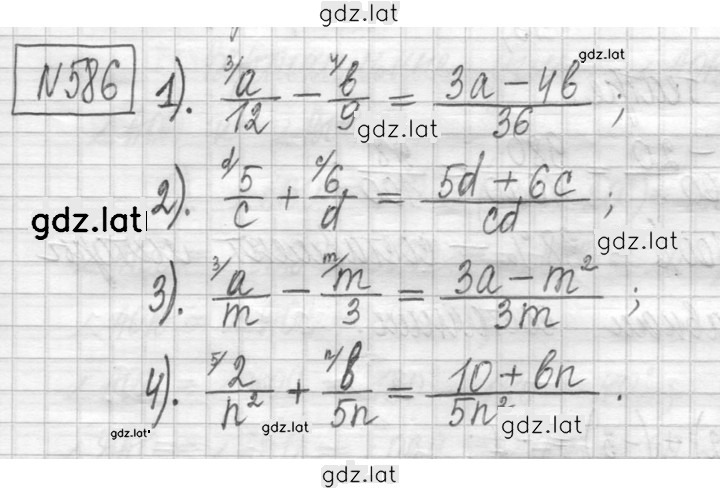 gdz.lat
N586 1). ³/a/12 − ⁴/b/9 = (3a − 4b)/36 ; gdz.lat
gdz.lat
2). ᵈ/5/c + ᶜ/6/d = (5d + 6c)/cd ;
gdz.lat gdz.lat
3). ³/a/m − ᵐ/m/3 = (3a − m²)/3m ;
4). ⁵/2/n² + ⁿ/b/5n = (10 + bn)/5n² .
gdz.lat gdz.lat gdz.lat
gdz.lat